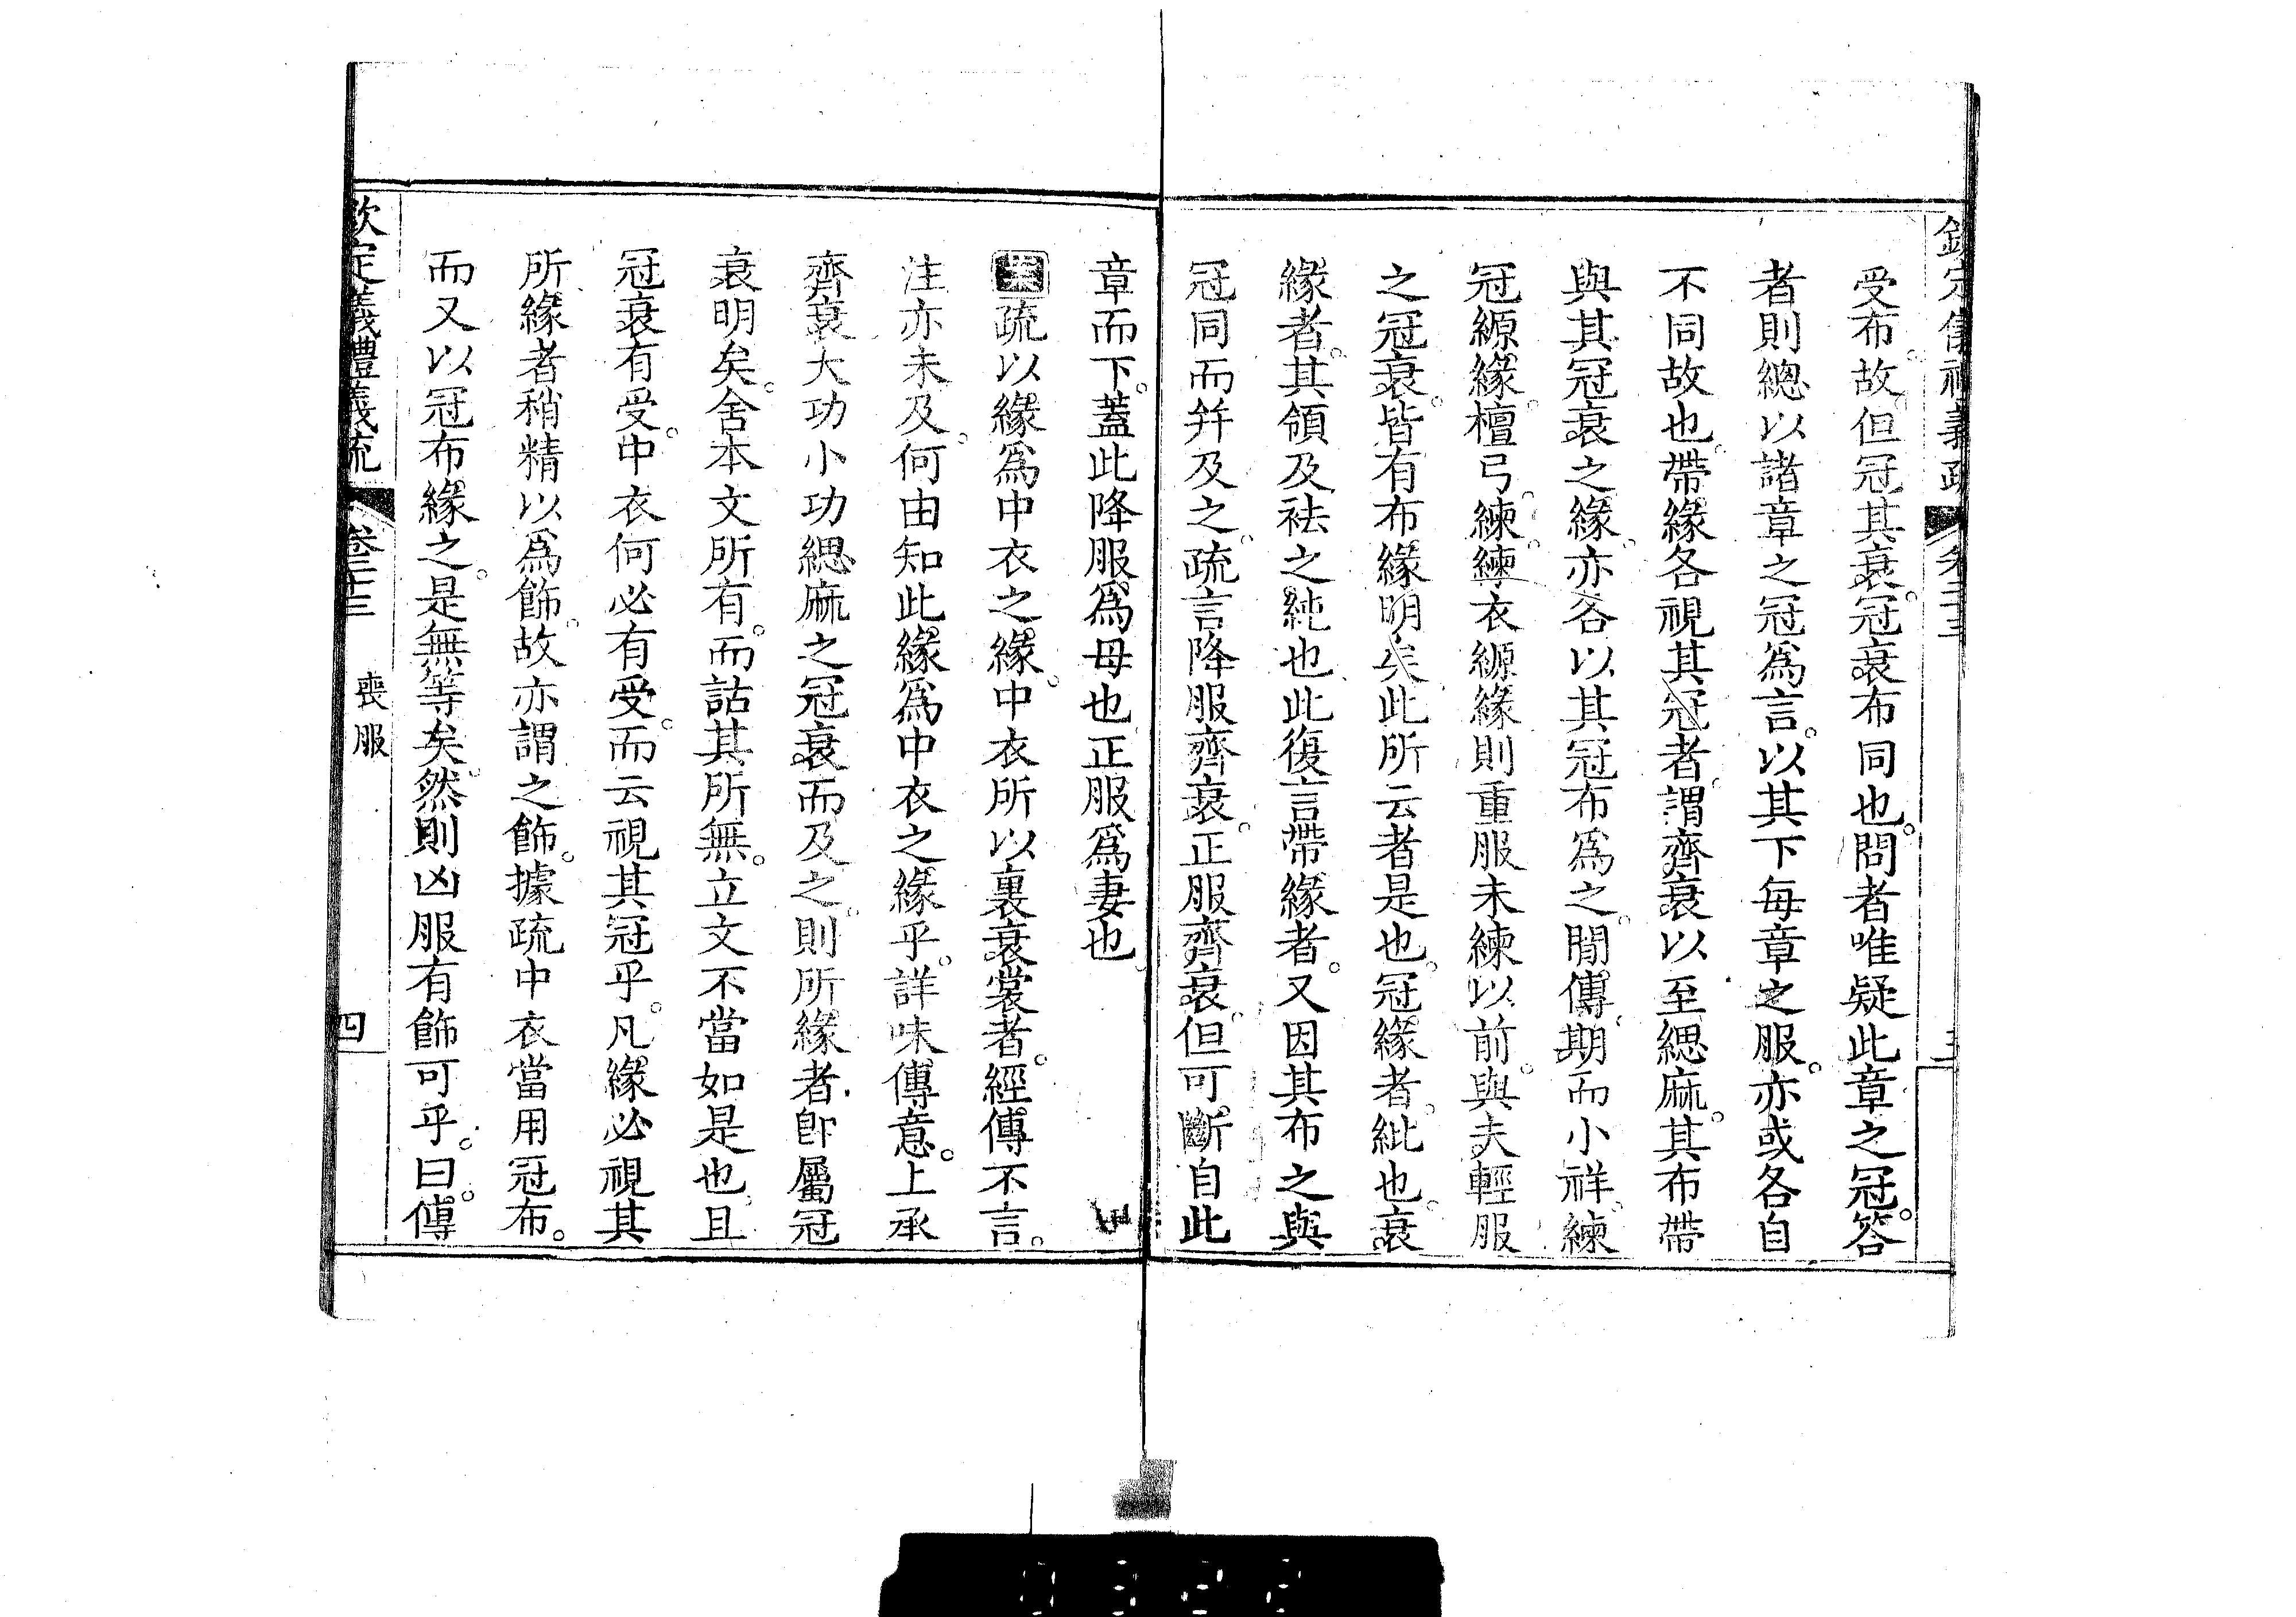 欽定儀禮義疏 卷二十三 三
受布故但冠其衰冠衰布同也問者唯疑此章之冠答
者則總以諸章之冠為言以其下每章之服亦或各自
不同故也帶緣各視其冠者謂齊衰以至緦麻其布帶
與其冠衰之緣亦各以其冠布為之閒傳期而小祥練
冠縓緣檀弓練練衣縓緣則重服未練以前與夫輕服
之冠衰皆有布緣明矣此所云者是也冠緣者紕也衰
緣者其領及袪之純也此復言帶緣者又因其布之與
冠同而并及之疏言降服齊衰正服齊衰但可斷自此
章而下蓋此降服為母也正服為妻也
案疏以緣為中衣之緣中衣所以裏衰裳者經傳不言
注亦未及何由知此緣為中衣之緣乎詳味傳意上承
齊衰大功小功緦麻之冠衰而及之則所緣者即屬冠
衰明矣舍本文所有而詁其所無立文不當如是也且
冠衰有受中衣何必有受而云視其冠乎凡緣必視其
所緣者稍精以為飾故亦謂之飾據疏中衣當用冠布
而又以冠布緣之是無等矣然則凶服有飾可乎曰傳
欽定儀禮義疏 卷二十三 喪服 四